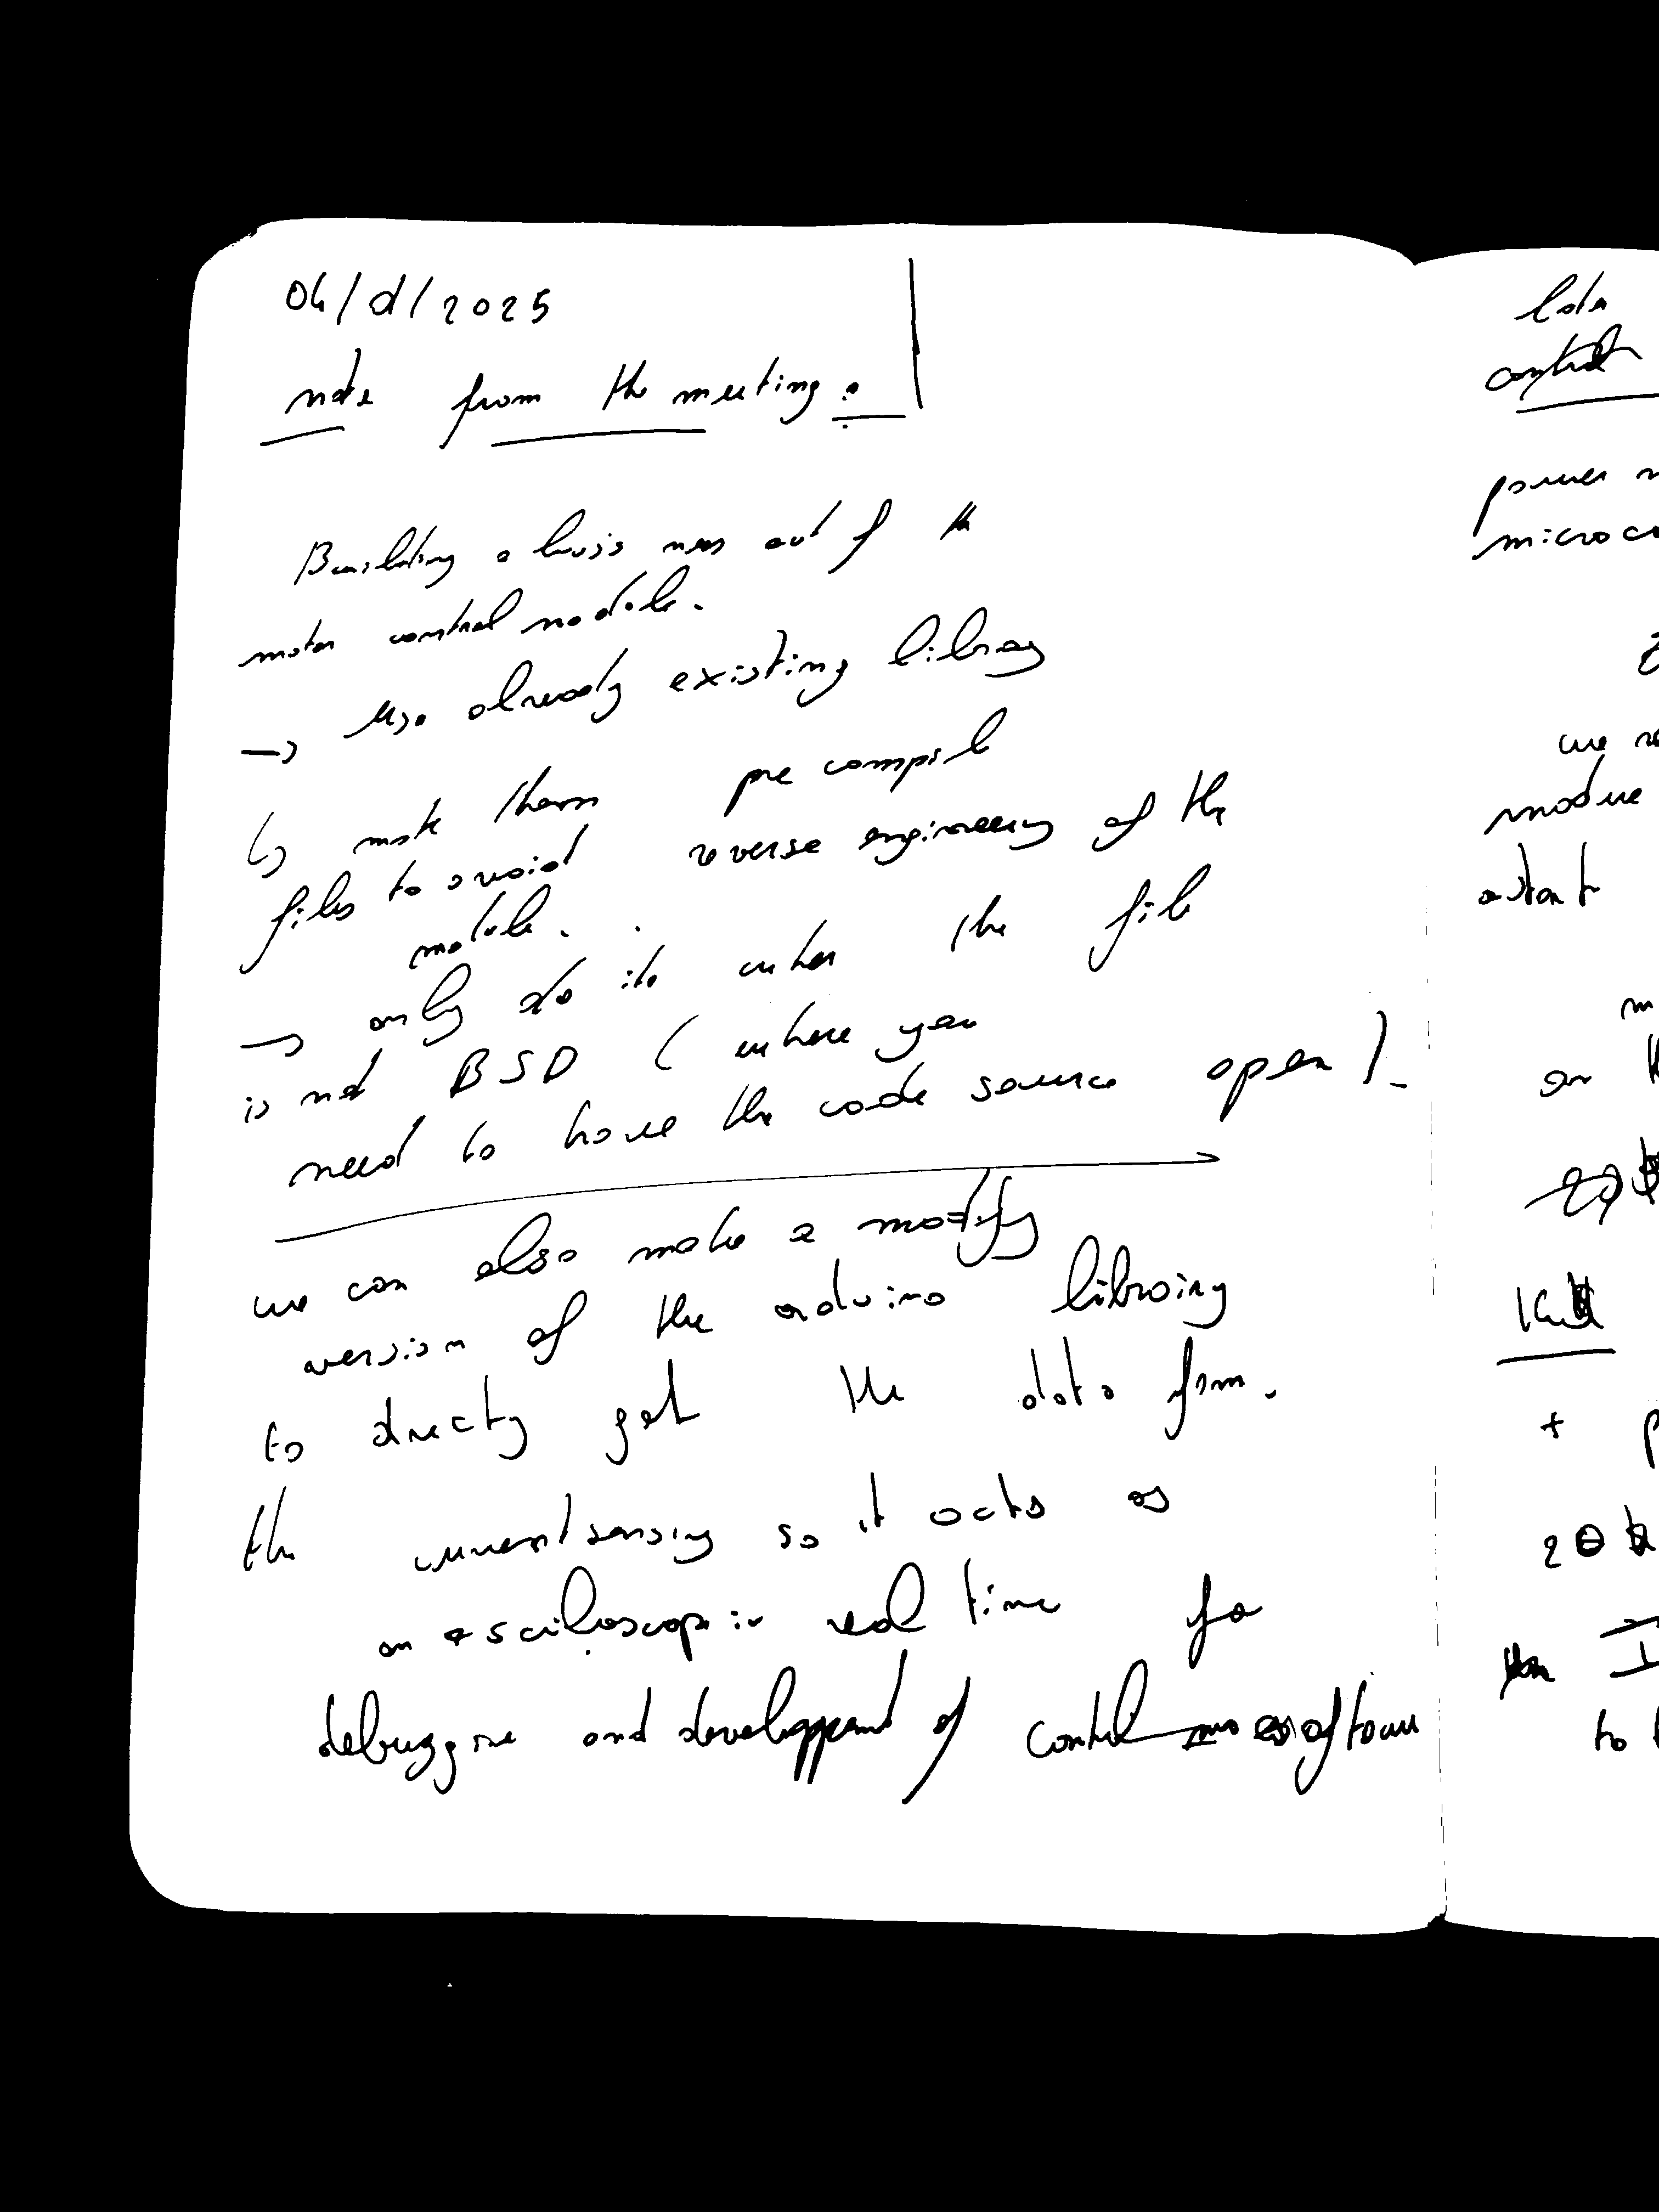 04/d/2025
note from the meeting :
Building a out of the
motor control module.
→ use already existing library
↳ make them pre compile
files to avoid reverse engineery of the
module.
→ only do it when the file
is not BSD ( where you
need to have the code source open ).
we can also make a modify
version of the arduino library
to directy get the data from.
the current sensing so it acts as
an osciloscope in real time for
debugging and developpement of control
lota
control
power
microco
we
module
on
+ p
20
to